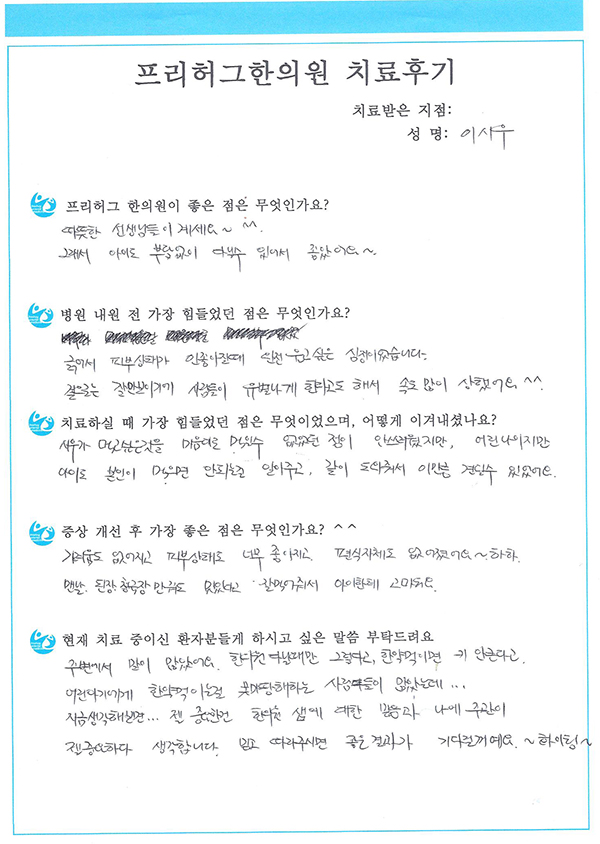 프리허그한의원 치료후기
치료받은 지점:
성 명: 이시우
프리허그 한의원이 좋은 점은 무엇인가요?
따뜻한 선생님들이 계세요~ ^^.
그래서 아이도 부담없이 다닐수 있어서 좋았어요~
병원 내원 전 가장 힘들었던 점은 무엇인가요?
긁어서 피부상태가 엉망 울고싶은 심정이었습니다.
겉으로는 잘안보이기에 사람들이 유별나게 한다고도 해서 속도 많이 상했어요^^.
치료하실 때 가장 힘들었던 점은 무엇이었으며, 어떻게 이겨내셨나요?
시우가 먹고싶은것을 마음대로 먹을수 없었던 점이 안쓰러웠지만, 어린나이지만
나이도 본인이 먹으면 안되는걸 알아주고, 같이 도와줘서 이만큼 견딜수 있었어요.
증상 개선 후 가장 좋은 점은 무엇인가요? ^^
가려움도 없어지고 피부상태도 너무 좋아지고 편식자체도 없어졌어요~하하.
맨날 된장 청국장 만줘도 맛있다고 잘먹어줘서 아이한테 고마워요.
현재 치료 중이신 환자분들게 하시고 싶은 말씀 부탁드려요
주변에서 말이 많았어요. 한의원 다닐때만 그렇다고, 한약먹이면 키 안큰다고.
어린아이에게 한약먹이는걸 못마땅해하는 사람들이 많았는데...
지금생각해보면... 젤 중요한건 한의원 샘에 대한 믿음과 나에 주관이
젤중요하다 생각합니다. 믿고 따라주시면 좋은결과가 기다릴꺼예요. ~화이팅~